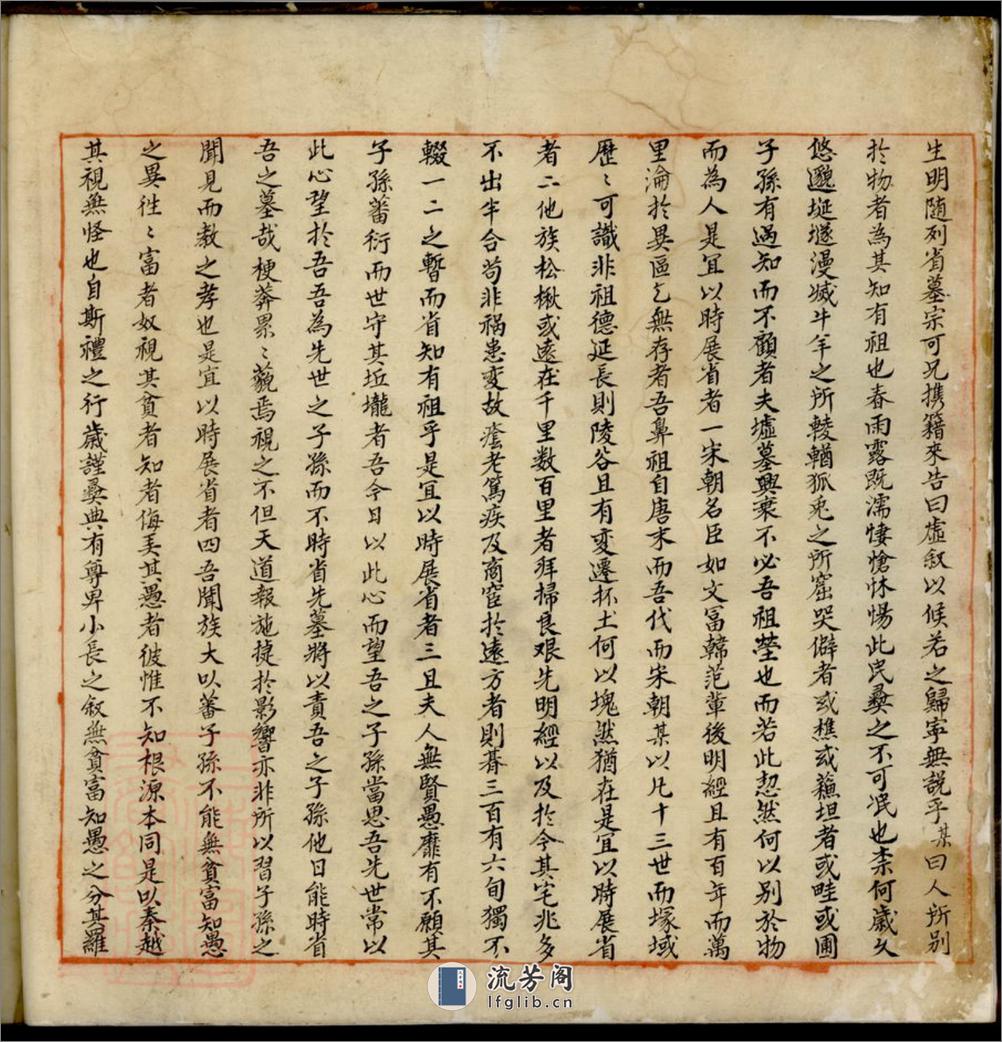 生明随列省墓宗可兄携籍來告曰虚叙以候若之歸寧無説乎某曰人所别
於物者為其知有祖也春雨露既濡悽愴怵惕此民彝之不可泯也柰何歲久
悠邈埏墜漫滅斗牟之所輘輶狐兎之所窟哭僻者或樵或蘓坦者或畦或圃
子孫有過知而不顧者夫墟墓興衰不必吾祖塋也而若此恝然何以别於物
而為人是宜以時展省者一宋朝名臣如文冨韓范輩後明經且有百年而萬
里淪於異區乞無存者吾鼻祖自唐末而吾代而宋朝某以凡十三世而塚域
歷〻可識非祖德延長則陵谷且有変遷抔土何以塊然猶在是宜以時展省
者二他族松楸或遠在千里数百里者拜掃良艰先明經以及於今其宅兆多
不出半合苟非禍患変故癃老篤疾及商宦於遠方者則朞三百有六旬獨不
輟一二之暫而省知有祖乎是宜以時展省者三且夫人無賢愚靡有不願其
子孫蕃衍而世守其坵壠者吾今日以此心而望吾之子孫當思吾先世常以
此心望於吾吾為先世之子孫而不時省先墓將以責吾之子孫他日能時省
吾之墓哉梗莽累〻藐焉視之不但天道報施捷於影響亦非所以習子孫之
聞見而教之孝也是宜以時展省者四吾聞族大以蕃子孫不能無貧富知愚
之異徃〻富者奴視其貧者知者侮美其愚者彼惟不知根源本同是以秦越
其視無怪也自斯禮之行歲謹彝典有尊卑小長之叙無貧富知愚之分其羅
流芳阁
lfglib.cn